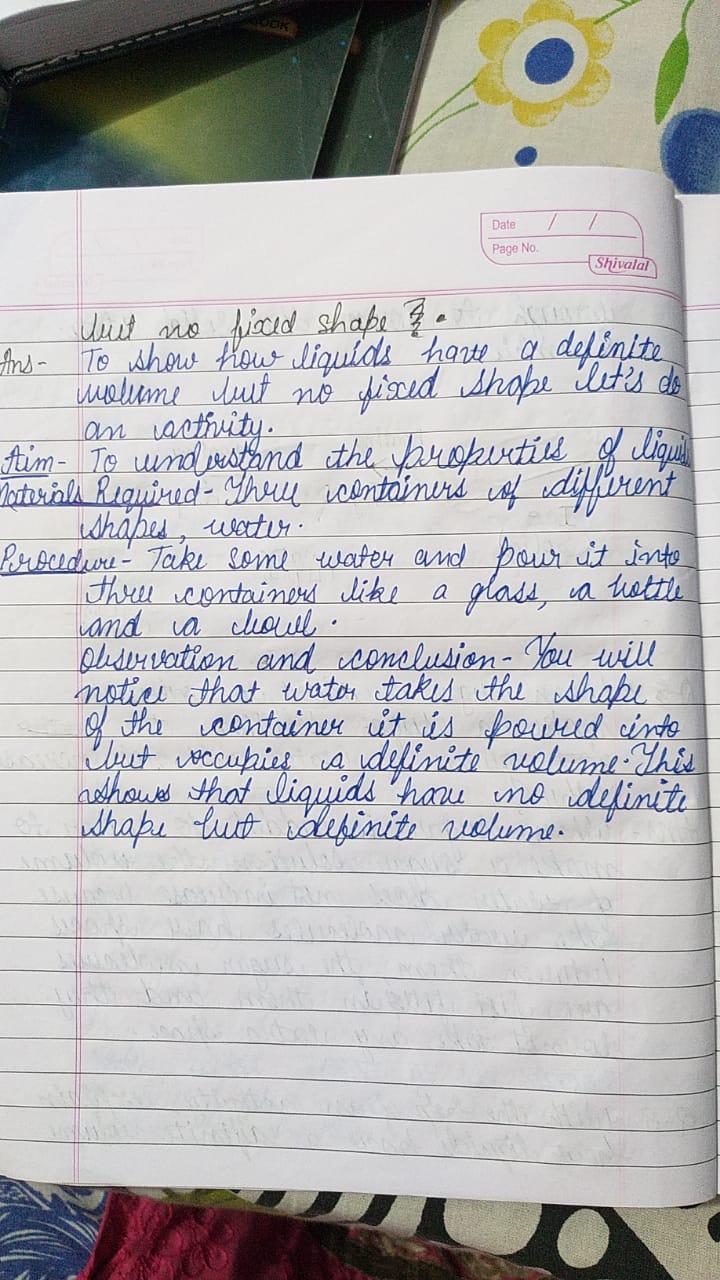 OOK
Date / /
Page No.
Shivalal
but no fixed shape ? .
Ans- To show how liquids have a definite
volume but no fixed shape let's do
an activity.
Aim- To understand the properties of liquids
Materials Required- Three containers of different
shapes, water.
Procedure- Take some water and pour it into
three containers like a glass, a bottle
and a bowl.
Observation and conclusion- You will
notice that water takes the shape
of the container it is poured into
but occupies a definite volume. This
shows that liquids have no definite
shape but definite volume.